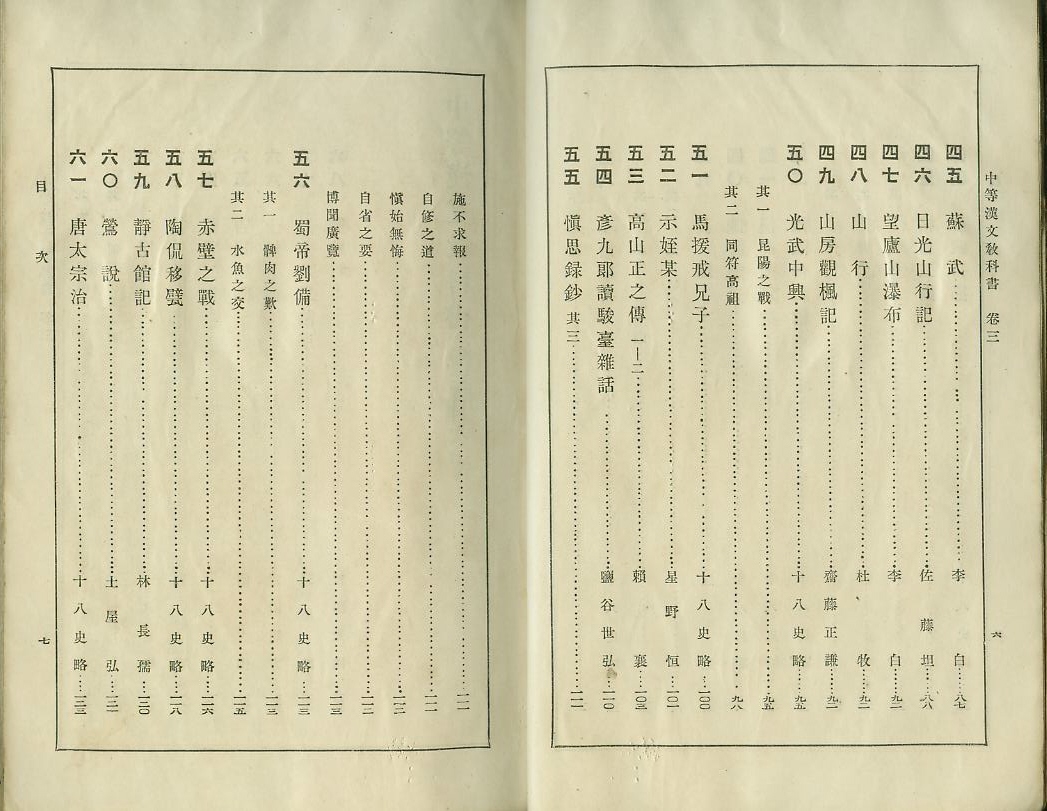 中等漢文敎科書 卷三
六
四五 蘇武……李白……八七
四六 日光山行記……佐藤坦……八八
四七 望廬山瀑布……李白……九二
四八 山行……杜牧……九二
四九 山房觀楓記……齋藤正謙……九二
五〇 光武中興……十八史略……九五
其一 昆陽之戰……九五
其二 同符高祖……九八
五一 馬援戒兄子……十八史略……一〇〇
五二 示姪某……星野恒……一〇一
五三 高山正之傳 一—二……賴襄……一〇三
五四 彥九郞讀駿臺雜話……鹽谷世弘……一一〇
五五 愼思録鈔 其三……一一一
施不求報……一一一
自修之道……一一一
愼始無悔……一一二
自省之要……一一二
博聞廣覽……一一三
五六 蜀帝劉備……十八史略……一一三
其一 髀肉之歎……一一三
其二 水魚之交……一一五
五七 赤壁之戰……十八史略……一一六
五八 陶侃移甓……十八史略……一一八
五九 靜古館記……林長孺……一二〇
六〇 鶯說……土屋弘……一二一
六一 唐太宗治……十八史略……一二三
目次
七